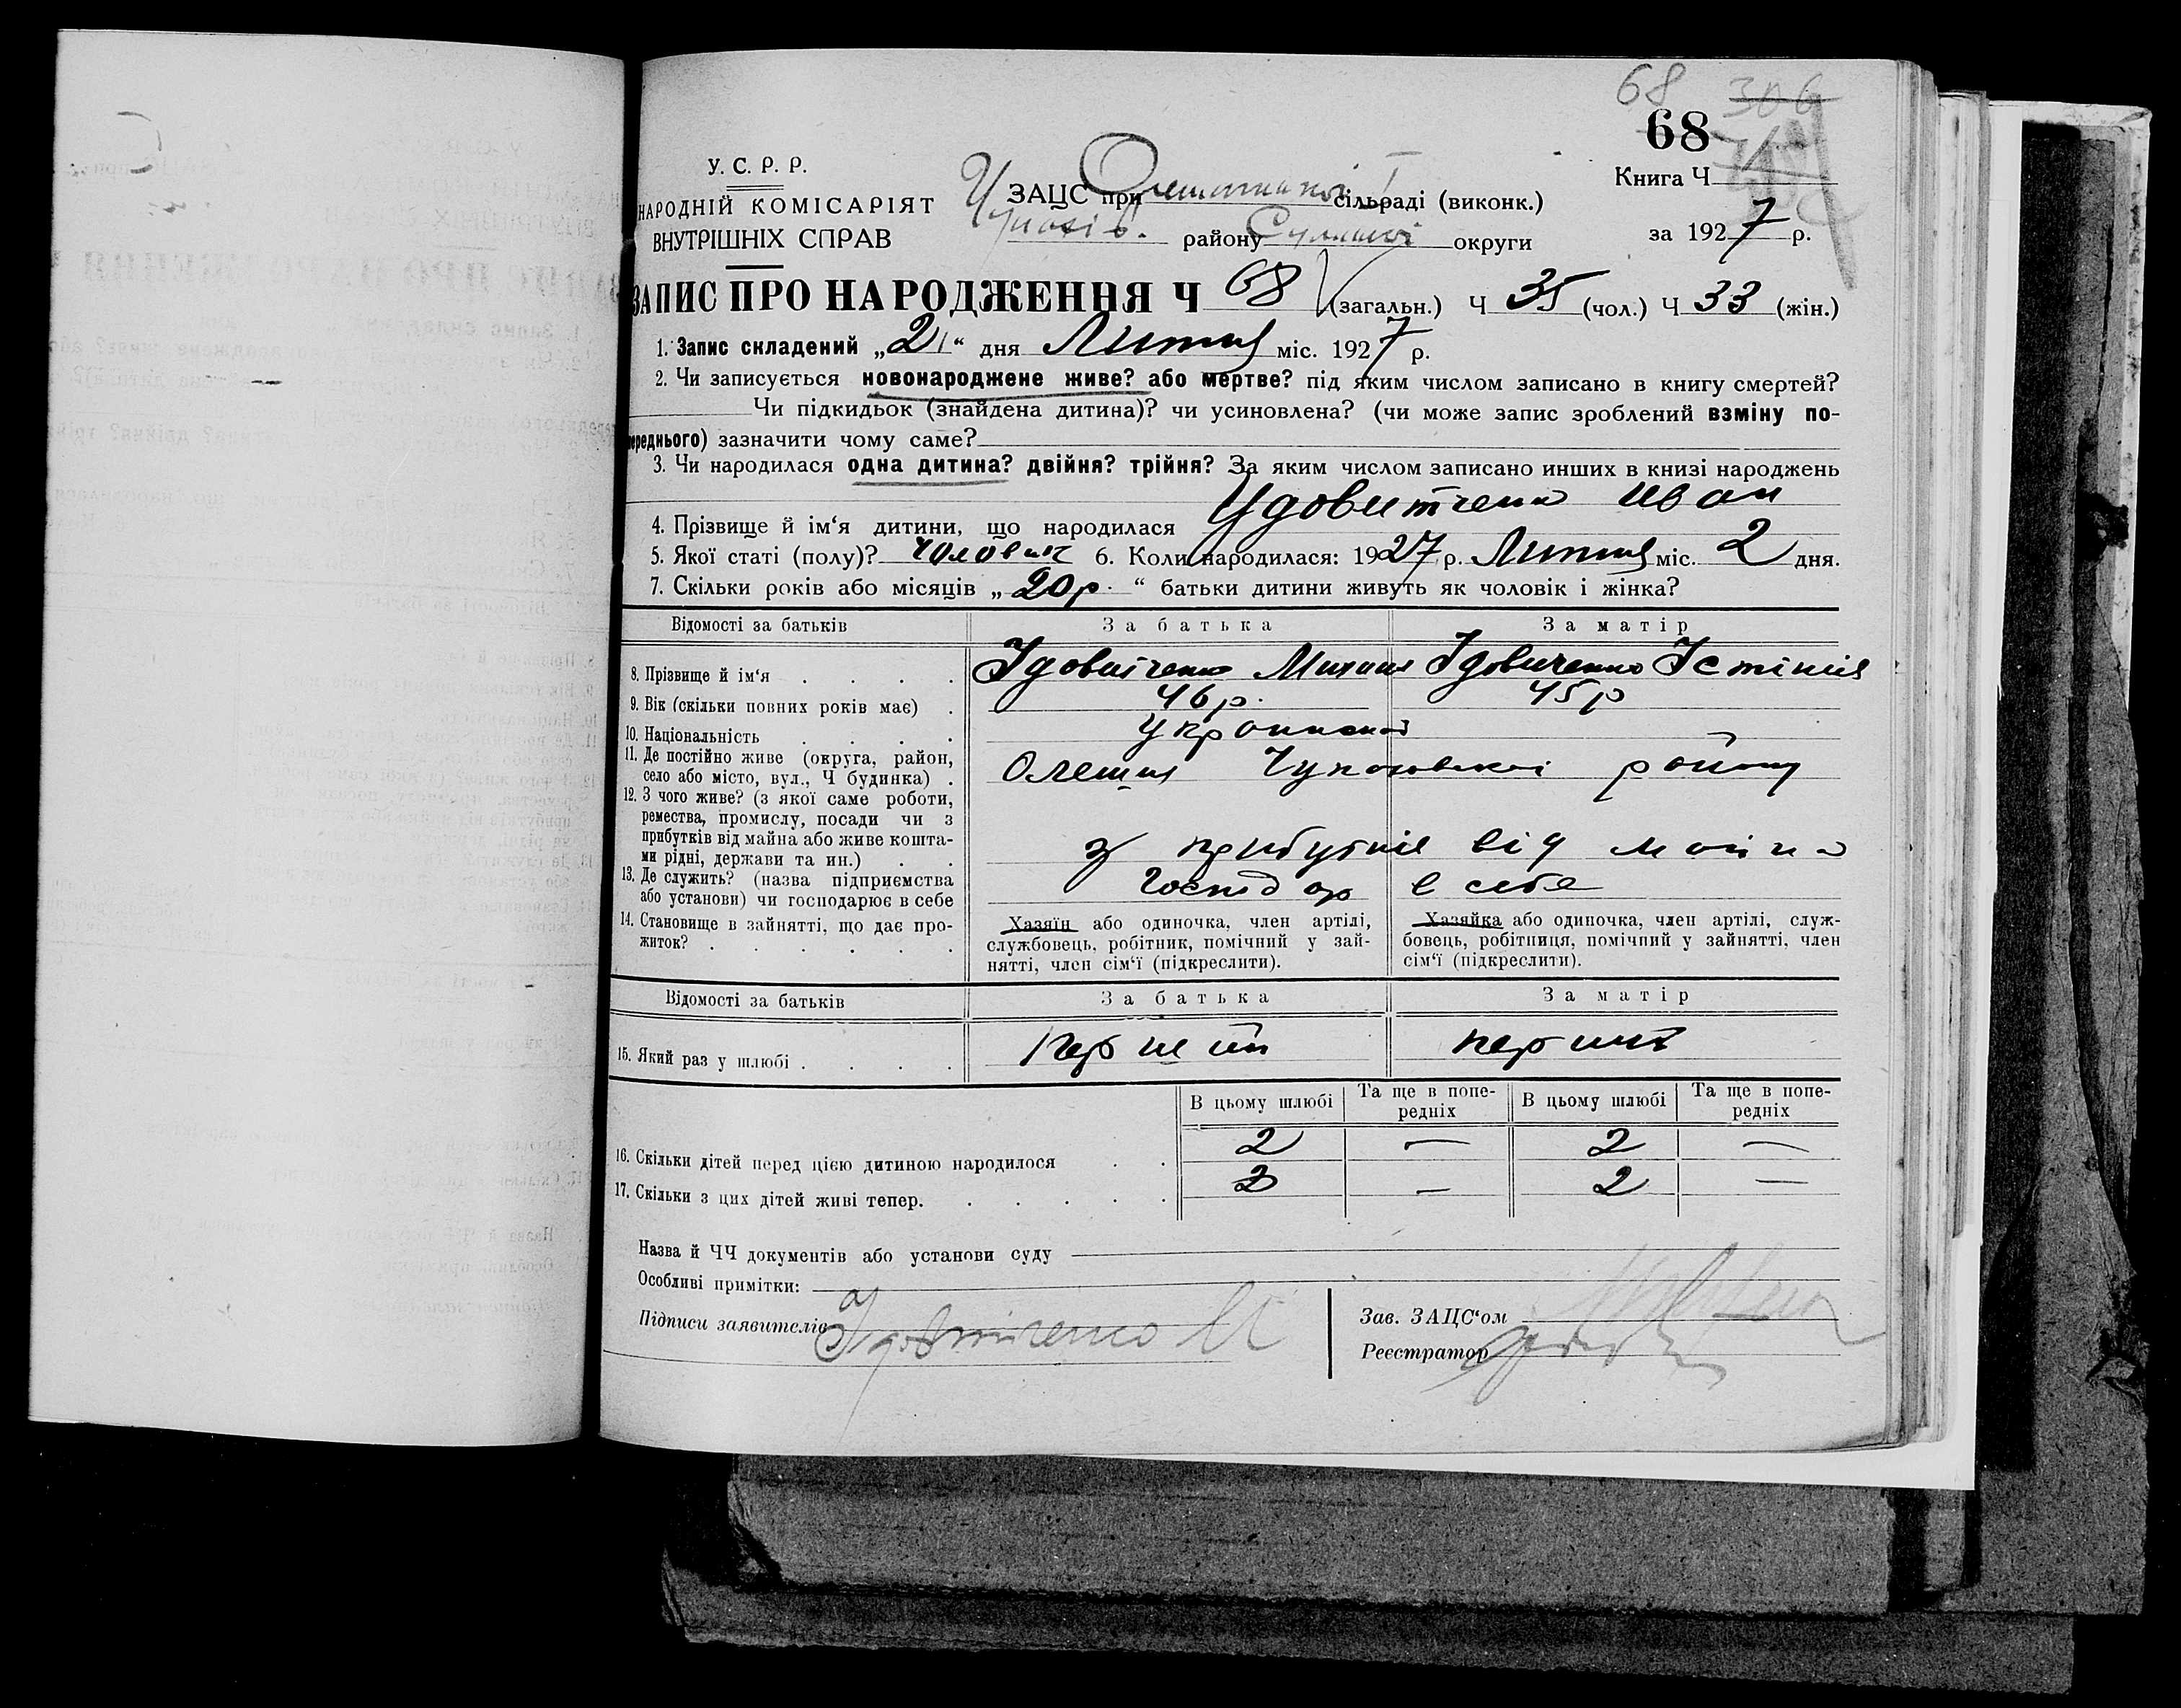 68 306
68
У. С. Р. Р.
НАРОДНІЙ КОМІСАРІЯТ
ВНУТРІШНІХ СПРАВ
ЗАЦС при сільраді (виконк.)
району Сумської округи
Книга Ч
за 1927 р.
ЗАПИС ПРО НАРОДЖЕННЯ Ч 68 (загальн.) Ч 35 (чол.) Ч 33 (жін.)
1. Запис складений „21“ дня Липня міс. 1927 р.
2. Чи записується новонароджене живе? або мертве? під яким числом записано в книгу смертей?
Чи підкидьок (знайдена дитина)? чи усиновлена? (чи може запис зроблений взміну по-
переднього) зазначити чому саме?
3. Чи народилася одна дитина? двійня? трійня? За яким числом записано инших в книзі народжень
4. Прізвище й ім‘я дитини, що народилася Удовитченко Иван
5. Якої статі (полу)? чоловик 6. Коли народилася: 1927 р. Липня міс. 2 дня.
7. Скільки років або місяців „20 р.“ батьки дитини живуть як чоловік і жінка?
Відомості за батьків За батька За матір
8. Прізвище й ім‘я . . . . Удовитченко Михаил Удовиченко Устиния
9. Вік (скільки повних років має) . 46 р. 45 р
10. Національність . . . .
11. Де постійно живе (округа, район,
село або місто, вул., Ч будинка) . Олешня району
12. З чого живе? (з якої саме роботи,
ремества, промислу, посади чи з
прибутків від майна або живе кошта-
ми рідні, держави та ин.) . . з прибутків від майна
13. Де служить? (назва підприємства
або установи) чи господарює в себе Господар в себе
14. Становище в зайнятті, що дає про-
житок? . . . . . .
Хазяїн або одиночка, член артілі,
службовець, робітник, помічний у зай-
нятті, член сім‘ї (підкреслити).
Хазяйка або одиночка, член артілі, служ-
бовець, робітниця, помічний у зайнятті, член
сім‘ї (підкреслити).
Відомості за батьків За батька За матір
15. Який раз у шлюбі . . . . перший перший
В цьому шлюбі Та ще в попе-
редніх В цьому шлюбі Та ще в попе-
редніх
16. Скільки дітей перед цією дитиною народилося . . 2 — 2 —
17. Скільки з цих дітей живі тепер. . . . . . 2 — 2 —
Назва й ЧЧ документів або установи суду
Особливі примітки:
Підписи заявителів Удовитченко М
Зав. ЗАЦС‘ом
Реєстратор